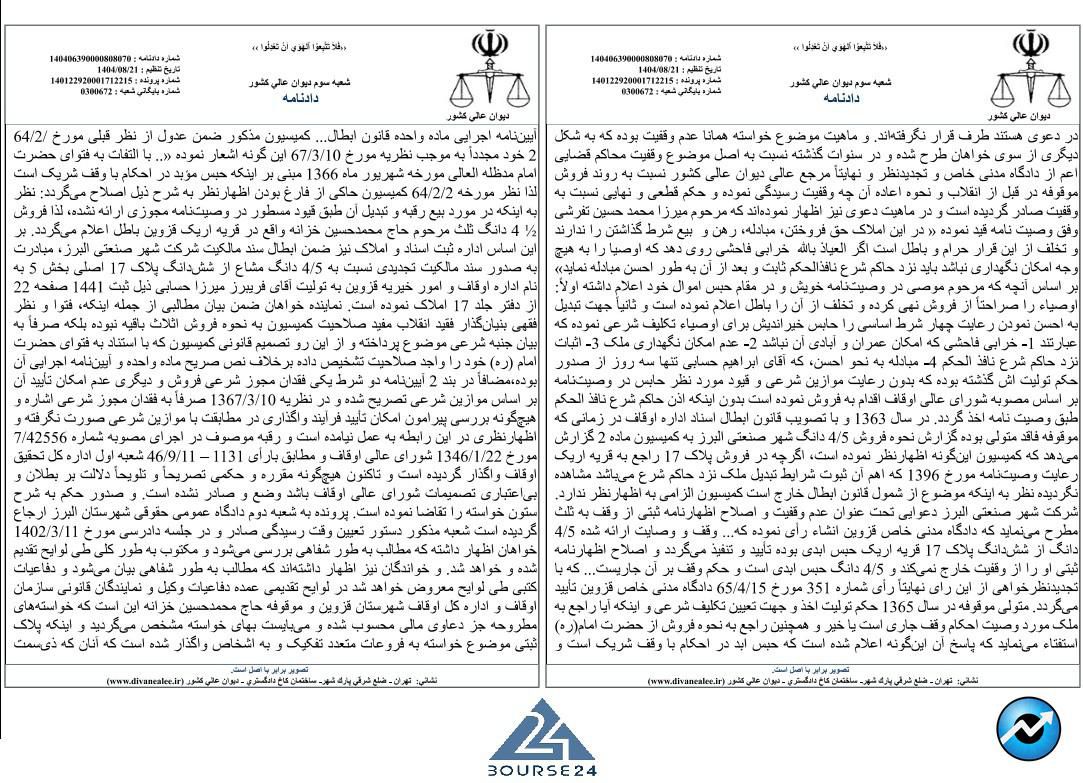 «فَلَا تَتَّبِعُوا الْهَوَى أَنْ تَعْدِلُوا»
شماره دادنامه : 140406390000808070
تاریخ تنظیم : 1404/08/21
شماره پرونده : 140122920001712215
شماره بایگانی شعبه : 0300672
شعبه سوم دیوان عالي کشور
دادنامه
دیوان عالي کشور
در دعوی هستند طرف قرار نگرفته‌اند. و ماهیت موضوع خواسته همانا عدم وقفیت بوده که به شکل
دیگری از سوی خواهان طرح شده و در سنوات گذشته نسبت به اصل موضوع وقفیت محاکم قضایی
اعم از دادگاه مدنی خاص و تجدیدنظر و نهایتاً مرجع عالی دیوان عالی کشور نسبت به روند فروش
موقوفه در قبل از انقلاب و نحوه اعاده آن چه وقفیت رسیدگی نموده و حکم قطعی و نهایی نسبت به
وقفیت صادر گردیده است و در ماهیت دعوی نیز اظهار نموده‌اند که مرحوم میرزا محمد حسین تفرشی
وفق وصیت نامه قید نموده « در این املاک حق فروختن، مبادله، رهن و بیع شرط گذاشتن را ندارند
و تخلف از این قرار حرام و باطل است اگر العیاذ بالله خرابی فاحشی روی دهد که اوصیا را به هیچ
وجه امکان نگهداری نباشد باید نزد حاکم شرع نافذالحکم ثابت و بعد از آن به طور احسن مبادله نماید»
بر اساس آنچه که مرحوم موصی در وصیت‌نامه خویش و در مقام حبس اموال خود اعلام داشته اولاً:
اوصیاء را صراحتاً از فروش نهی کرده و تخلف از آن را باطل اعلام نموده است و ثانیاً جهت تبدیل
به احسن نمودن رعایت چهار شرط اساسی را حابس خیراندیش برای اوصیاء تکلیف شرعی نموده که
عبارتند 1- خرابی فاحشی که امکان عمران و آبادی آن نباشد 2- عدم امکان نگهداری ملک 3- اثبات
نزد حاکم شرع نافذ الحکم 4- مبادله به نحو احسن، که آقای ابراهیم حسابی تنها سه روز از صدور
حکم تولیت اش گذشته بوده که بدون رعایت موازین شرعی و قیود مورد نظر حابس در وصیت‌نامه
بر اساس مصوبه شورای عالی اوقاف اقدام به فروش نموده است بدون اینکه اذن حاکم شرع نافذ الحکم
طبق وصیت نامه اخذ گردد. در سال 1363 و با تصویب قانون ابطال اسناد اداره اوقاف در زمانی که
موقوفه فاقد متولی بوده گزارش نحوه فروش 4/5 دانگ شهر صنعتی البرز به کمیسیون ماده 2 گزارش
می‌دهد که کمیسیون این‌گونه اظهارنظر نموده است، اگرچه در فروش پلاک 17 راجع به قریه اریک
رعایت وصیت‌نامه مورخ 1396 که اهم آن ثبوت شرایط تبدیل ملک نزد حاکم شرع می‌باشد مشاهده
نگردیده نظر به اینکه موضوع از شمول قانون ابطال خارج است کمیسیون الزامی به اظهارنظر ندارد.
شرکت شهر صنعتی البرز دعوایی تحت عنوان عدم وقفیت و اصلاح اظهارنامه ثبتی از وقف به ثلث
مطرح می‌نماید که دادگاه مدنی خاص قزوین انشاء رأی نموده که... وقف و وصایت ارائه شده 4/5
دانگ از شش‌دانگ پلاک 17 قریه اریک حبس ابدی بوده تأیید و تنفیذ می‌گردد و اصلاح اظهارنامه
ثبتی او را از وقفیت خارج نمی‌کند و 4/5 دانگ حبس ابدی است و حکم وقف بر آن جاریست... که با
تجدیدنظرخواهی از این رأی نهایتاً رأی شماره 351 مورخ 65/4/15 دادگاه مدنی خاص قزوین تأیید
می‌گردد. متولی موقوفه در سال 1365 حکم تولیت اخذ و جهت تعیین تکلیف شرعی و اینکه آیا راجع به
ملک مورد وصیت احکام وقف جاری است یا خیر و همچنین راجع به نحوه فروش از حضرت امام(ره)
استفتاء می‌نماید که پاسخ آن این‌گونه اعلام شده است که حبس ابد در احکام با وقف شریک است و
تصویر برابر با اصل است.
نشاني: تهران - ضلع شرقي پارك شهر- ساختمان كاخ دادگستري - ديوان عالي كشور (www.divanealee.ir)
«فَلَا تَتَّبِعُوا الْهَوَى أَنْ تَعْدِلُوا»
شماره دادنامه : 140406390000808070
تاریخ تنظیم : 1404/08/21
شماره پرونده : 140122920001712215
شماره بایگانی شعبه : 0300672
شعبه سوم دیوان عالي کشور
دادنامه
دیوان عالي کشور
آیین‌نامه اجرایی ماده واحده قانون ابطال... کمیسیون مذکور ضمن عدول از نظر قبلی مورخ 64/2/
2 خود مجدداً به موجب نظریه مورخ 67/3/10 این گونه اشعار نموده «.. با التفات به فتوای حضرت
امام مدظله العالی مورخه شهریور ماه 1366 مبنی بر اینکه حبس مؤبد در احکام با وقف شریک است
لذا نظر مورخه 64/2/2 کمیسیون حاکی از فارغ بودن اظهارنظر به شرح ذیل اصلاح می‌گردد: نظر
به اینکه در مورد بیع رقبه و تبدیل آن طبق قیود مسطور در وصیت‌نامه مجوزی ارائه نشده، لذا فروش
½ 4 دانگ ثلث مرحوم حاج محمدحسین خزانه واقع در قریه اریک قزوین باطل اعلام می‌گردد. بر
این اساس اداره ثبت اسناد و املاک نیز ضمن ابطال سند مالکیت شرکت شهر صنعتی البرز، مبادرت
به صدور سند مالکیت تجدیدی نسبت به 4/5 دانگ مشاع از شش‌دانگ پلاک 17 اصلی بخش 5 به
نام اداره اوقاف و امور خیریه قزوین به تولیت آقای فریبرز میرزا حسابی ذیل ثبت 1441 صفحه 22
از دفتر جلد 17 املاک نموده است. نماینده خواهان ضمن بیان مطالبی از جمله اینکه، فتوا و نظر
فقهی بنیان‌گذار فقید انقلاب مفید صلاحیت کمیسیون به نحوه فروش اثلاث باقیه نبوده بلکه صرفاً به
بیان جنبه شرعی موضوع پرداخته و از این رو تصمیم قانونی کمیسیون که با استناد به فتوای حضرت
امام (ره) خود را واجد صلاحیت تشخیص داده برخلاف نص صریح ماده واحده و آیین‌نامه اجرایی آن
بوده،مضافاً در بند 2 آیین‌نامه دو شرط یکی فقدان مجوز شرعی فروش و دیگری عدم امکان تأیید آن
بر اساس موازین شرعی تصریح شده و در نظریه 1367/3/10 صرفاً به فقدان مجوز شرعی اشاره و
هیچ‌گونه بررسی پیرامون امکان تأیید فرآیند واگذاری در مطابقت با موازین شرعی صورت نگرفته و
اظهارنظری در این رابطه به عمل نیامده است و رقبه موصوف در اجرای مصوبه شماره 7/42556
مورخ 1346/1/22 شورای عالی اوقاف و مطابق بارأی 1131 – 46/9/11 شعبه اول اداره کل تحقیق
اوقاف واگذار گردیده است و تاکنون هیچ‌گونه مقرره و حکمی تصریحاً و تلویحاً دلالت بر بطلان و
بی‌اعتباری تصمیمات شورای عالی اوقاف باشد وضع و صادر نشده است. و صدور حکم به شرح
ستون خواسته را تقاضا نموده است. پرونده به شعبه دوم دادگاه عمومی حقوقی شهرستان البرز ارجاع
گردیده است شعبه مذکور دستور تعیین وقت رسیدگی صادر و در جلسه دادرسی مورخ 1402/3/11
خواهان اظهار داشته که مطالب به طور شفاهی بررسی می‌شود و مکتوب به طور کلی طی لوایح تقدیم
شده و خواهد شد. و خواندگان نیز اظهار داشته‌اند که مطالب به طور شفاهی بیان می‌شود و دفاعیات
کتبی طی لوایح معروض خواهد شد در لوایح تقدیمی عمده دفاعیات وکیل و نمایندگان قانونی سازمان
اوقاف و اداره کل اوقاف شهرستان قزوین و موقوفه حاج محمدحسین خزانه این است که خواسته‌های
مطروحه جز دعاوی مالی محسوب شده و می‌بایست بهای خواسته مشخص می‌گردید و اینکه پلاک
ثبتی موضوع خواسته به فروعات متعدد تفکیک و به اشخاص واگذار شده است که آنان که ذی‌سمت
تصویر برابر با اصل است.
نشاني: تهران - ضلع شرقي پارك شهر- ساختمان كاخ دادگستري - ديوان عالي كشور (www.divanealee.ir)
24
BOURSE24